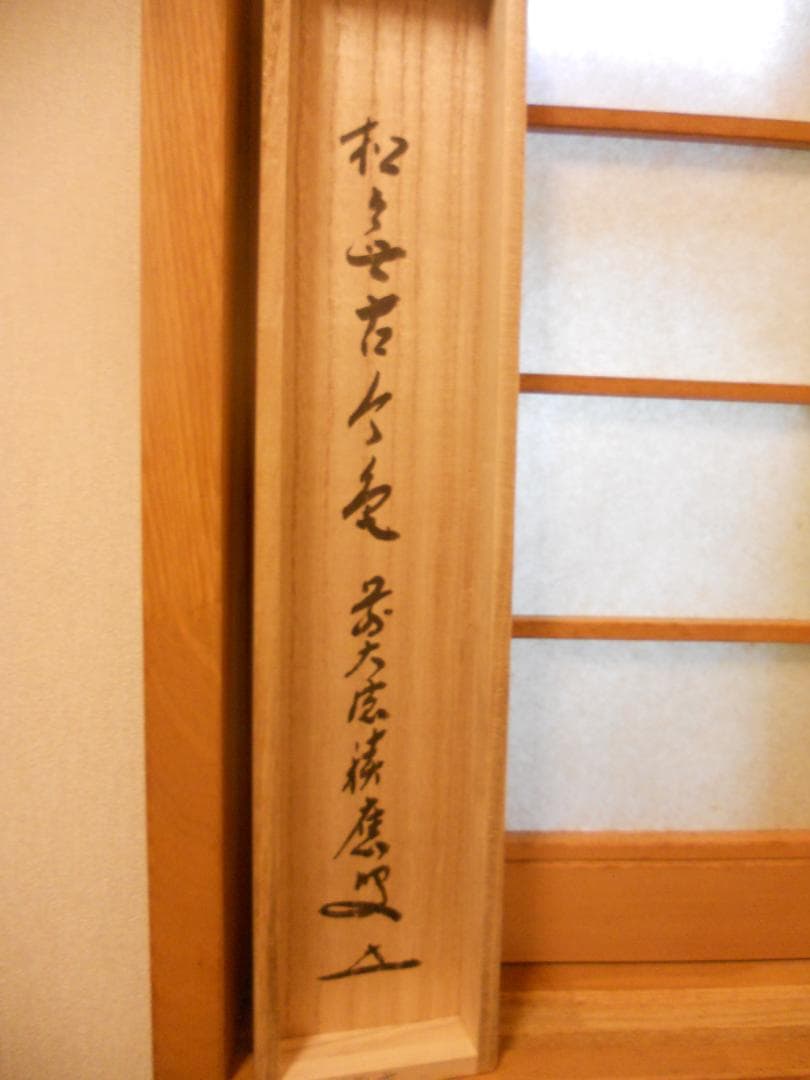 松無古今色 前大徳積應叟